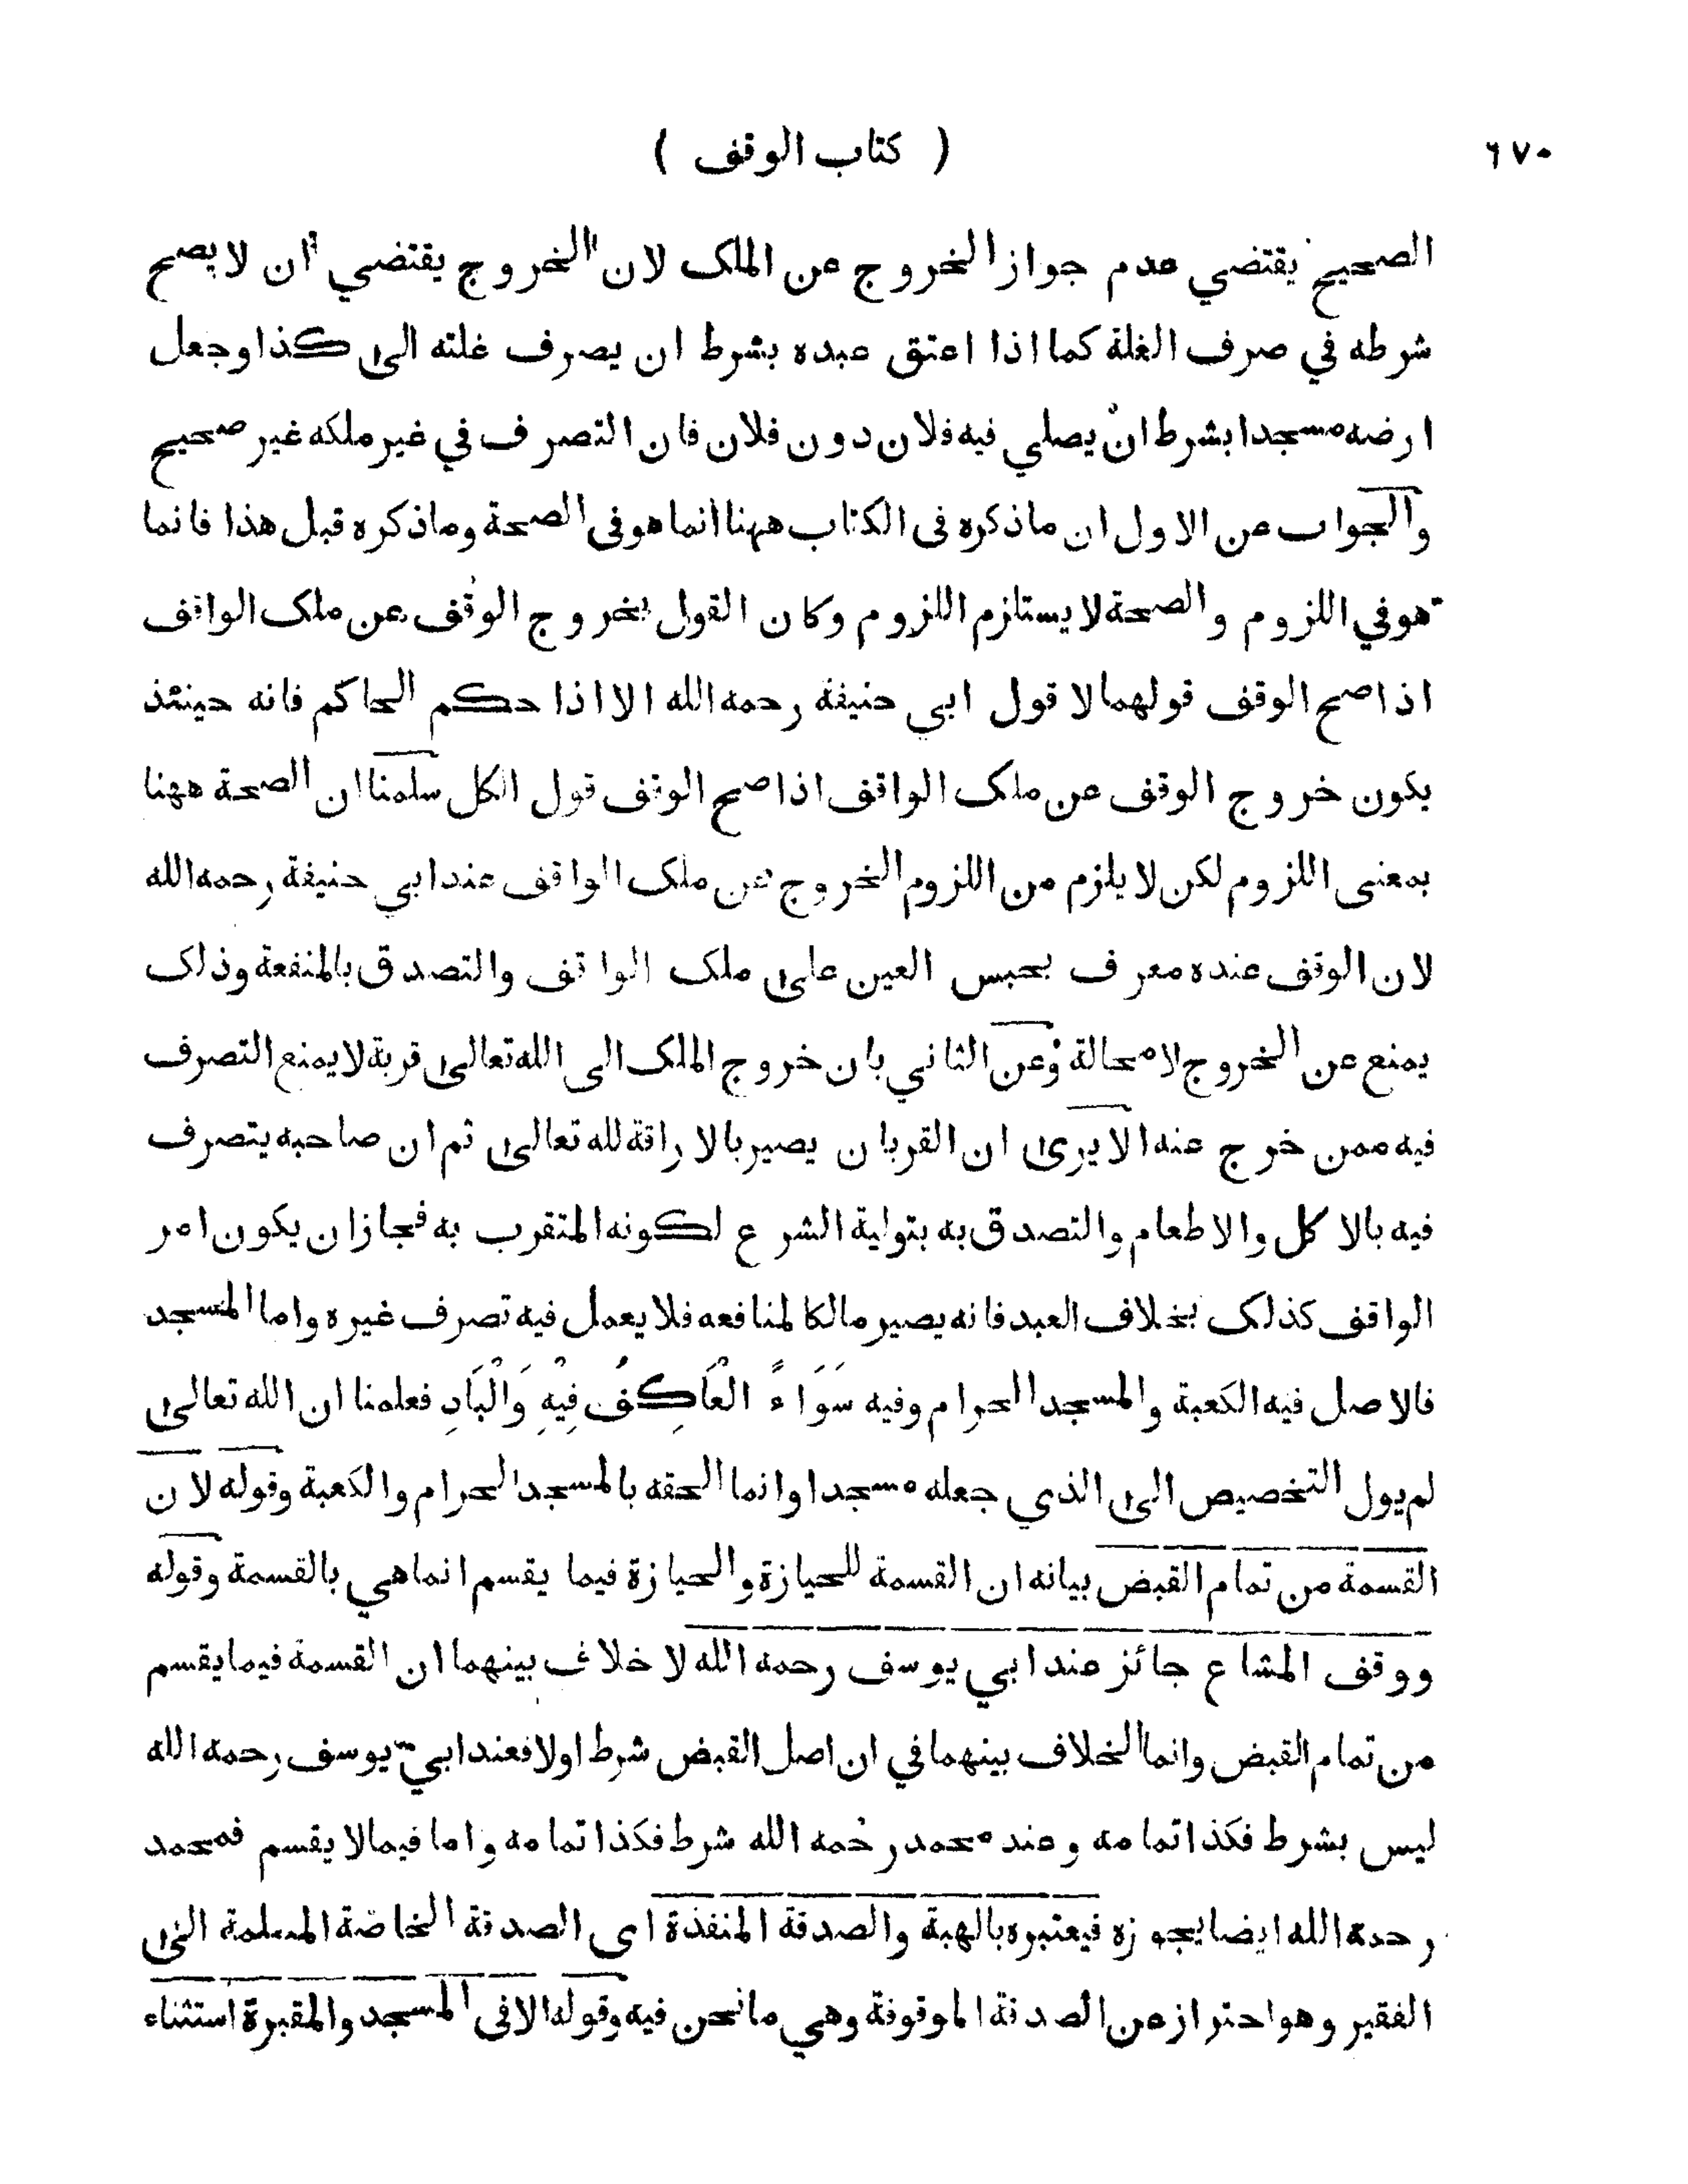 ٦٧٠
( كتاب الوقف )
الصحيح يقتضي عدم جواز الخروج عن الملك لان الخروج يقتضي ان لا يصح
شرطه في صرف الغلة كما اذا اعتق عبده بشرط ان يصرف غلته الى كذا وجعل
ارضه مسجدا بشرط ان يصلي فيه فلان دون فلان فان التصرف في غير ملكه غير صحيح
والجواب عن الاول ان ماذكره فى الكتاب ههنا انما هو فى الصحة وماذكره قبل هذا فانما
هو في اللزوم والصحة لا يستلزم اللزوم وكان القول بخروج الوقف عن ملك الواقف
اذا صح الوقف قولهما لا قول ابي حنيفة رحمه الله الا اذا حكم الحاكم فانه حينئذ
يكون خروج الوقف عن ملك الواقف اذا صح الوقف قول الكل سلمنا ان الصحة ههنا
بمعنى اللزوم لكن لا يلزم من اللزوم الخروج عن ملك الواقف عند ابي حنيفة رحمه الله
لان الوقف عنده معرف بحبس العين على ملك الواقف والتصدق بالمنفعة وذلك
يمنع عن الخروج لا محالة وعن الثاني بان خروج الملك الى الله تعالى قربة لا يمنع التصرف
فيه ممن خرج عنه الا يرى ان القربان يصير بالاراقة لله تعالى ثم ان صاحبه يتصرف
فيه بالاكل والاطعام والتصدق به بتولية الشرع لكونه المتقرب به فجاز ان يكون امر
الواقف كذلك بخلاف العبد فانه يصير مالكا لمنافعه فلا يعمل فيه تصرف غيره واما المسجد
فالاصل فيه الكعبة والمسجد الحرام وفيه سَوَاءً الْعَاكِفُ فِيْهِ وَالْبَادِ فعلمنا ان الله تعالى
لم يول التخصيص الى الذي جعله مسجدا وانما الحقه بالمسجد الحرام والكعبة وقوله لان
القسمة من تمام القبض بيانه ان القسمة للحيازة والحيازة فيما يقسم انما هي بالقسمة وقوله
ووقف المشاع جائز عند ابي يوسف رحمه الله لا خلاف بينهما ان القسمة فيما يقسم
من تمام القبض وانما الخلاف بينهما في ان اصل القبض شرط اولا فعند ابي يوسف رحمه الله
ليس بشرط فكذا تمامه وعند محمد رحمه الله شرط فكذا تمامه واما فيما لا يقسم فمحمد
رحمه الله ايضا يجوزه فيعتبره بالهبة والصدقة المنفذة اى الصدقة الخاصة المسلمة الى
الفقير وهو احتراز عن الصدقة الموقوفة وهي ما نحن فيه وقوله الا فى المسجد والمقبرة استثناء